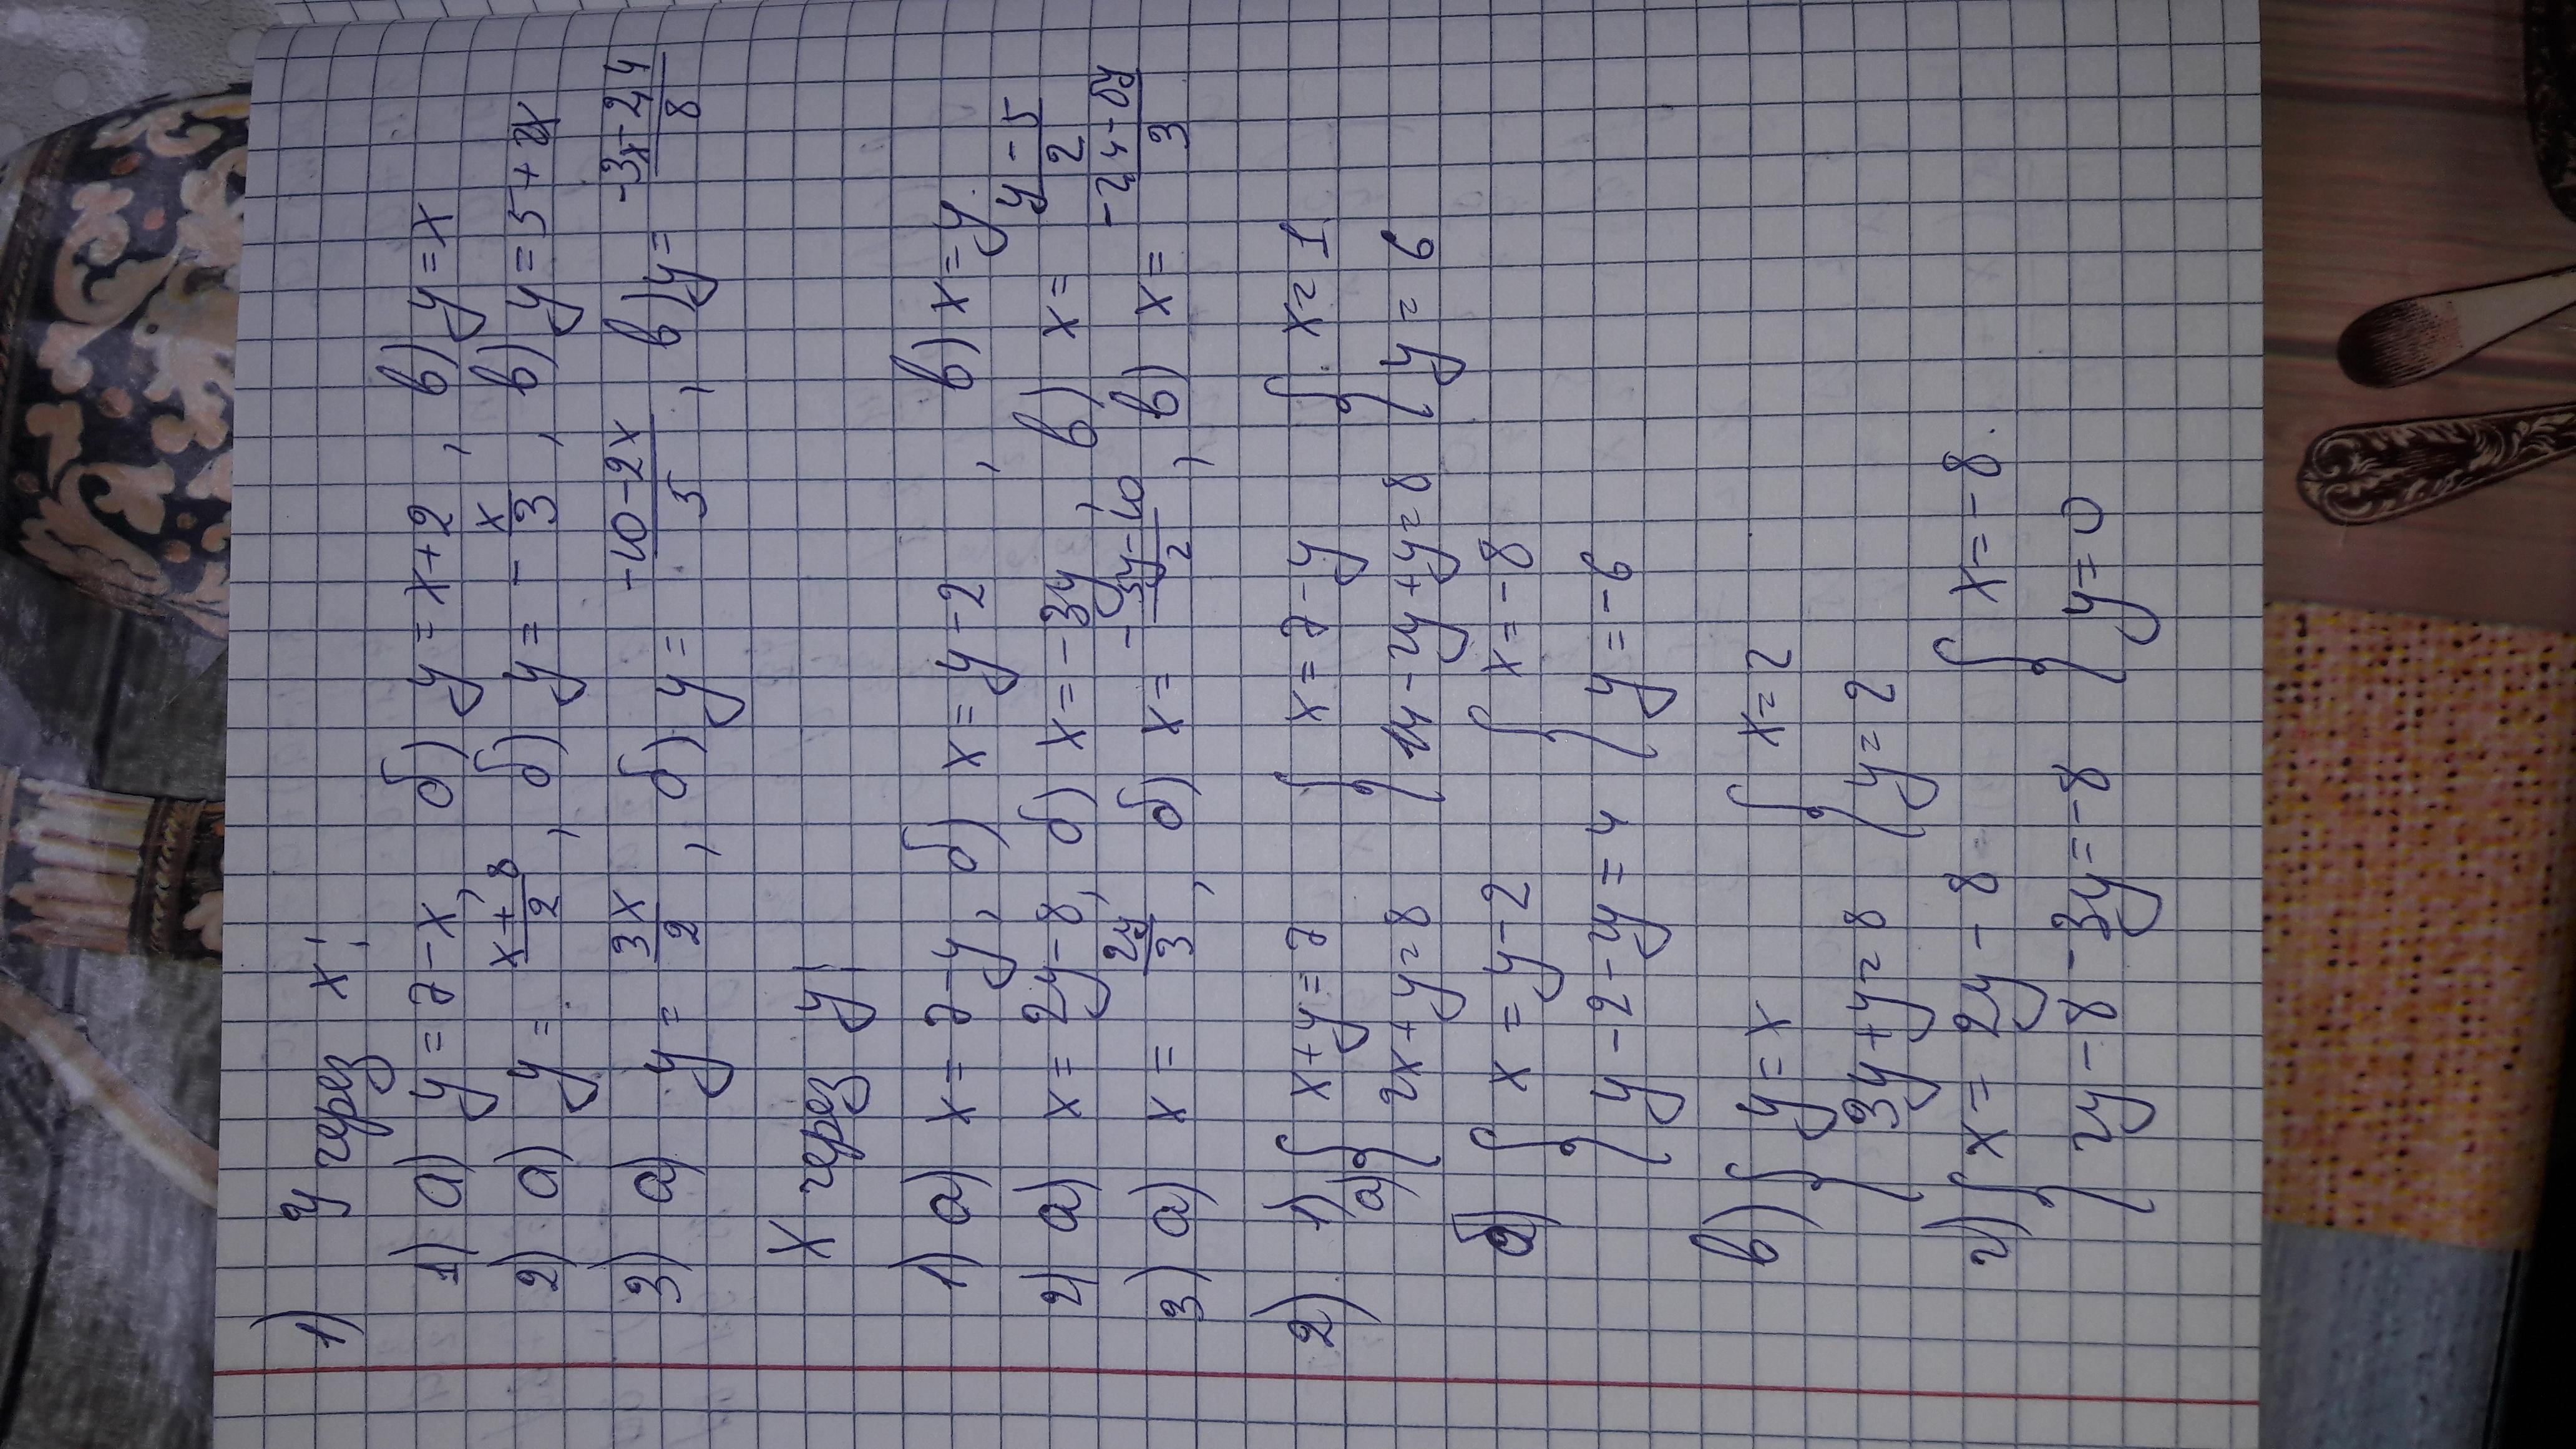 1) y через x:
1) а) y = 7 - x, б) y = x + 2, в) y = x
2) а) y = (x + 8)/2, б) y = - x/3, в) y = 5 + 2x
3) а) y = 3x/2, б) y = (-10 - 2x)/5, в) y = (-3x - 24)/8
x через y:
1) а) x = 7 - y, б) x = y - 2, в) x = y
2) а) x = 2y - 8, б) x = -3y, в) x = (y - 5)/2
3) а) x = 2y/3, б) x = (-5y - 10)/2, в) x = (-24 - 8y)/3
2) 1) а) { x + y = 7 { x = 7 - y { x = 1
2x + y = 8 14 - 2y + y = 8 y = 6
б) { x = y - 2 { x = -8
y - 2 - 2y = 4 y = -6
в) { y = x { x = 2
3y + y = 8 y = 2
г) { x = 2y - 8 { x = -8
2y - 8 - 3y = -8 y = 0